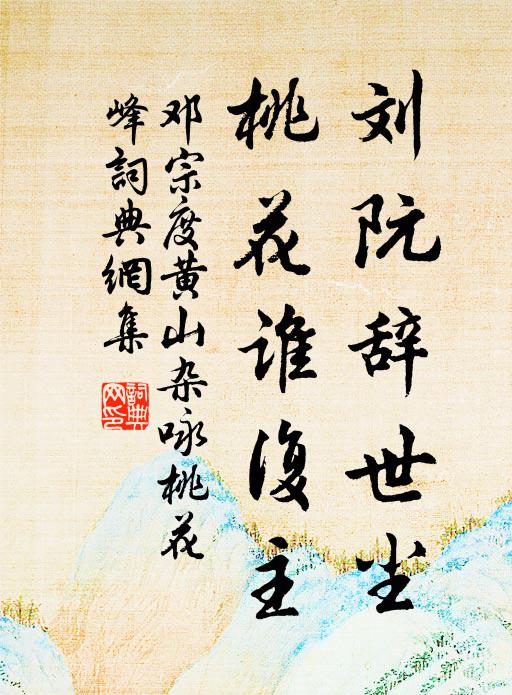 刘阮辞世尘
桃花谁复主
邓宗度黄山杂咏桃花
峰詞典網集
詞典网印